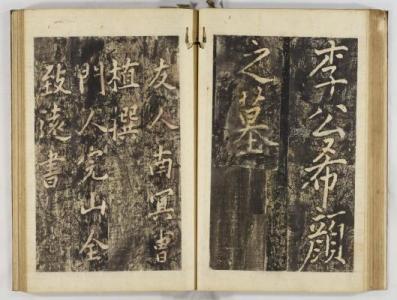 李公希顏
之墓
友人南冥曺
植撰
門人完山全
致遠書